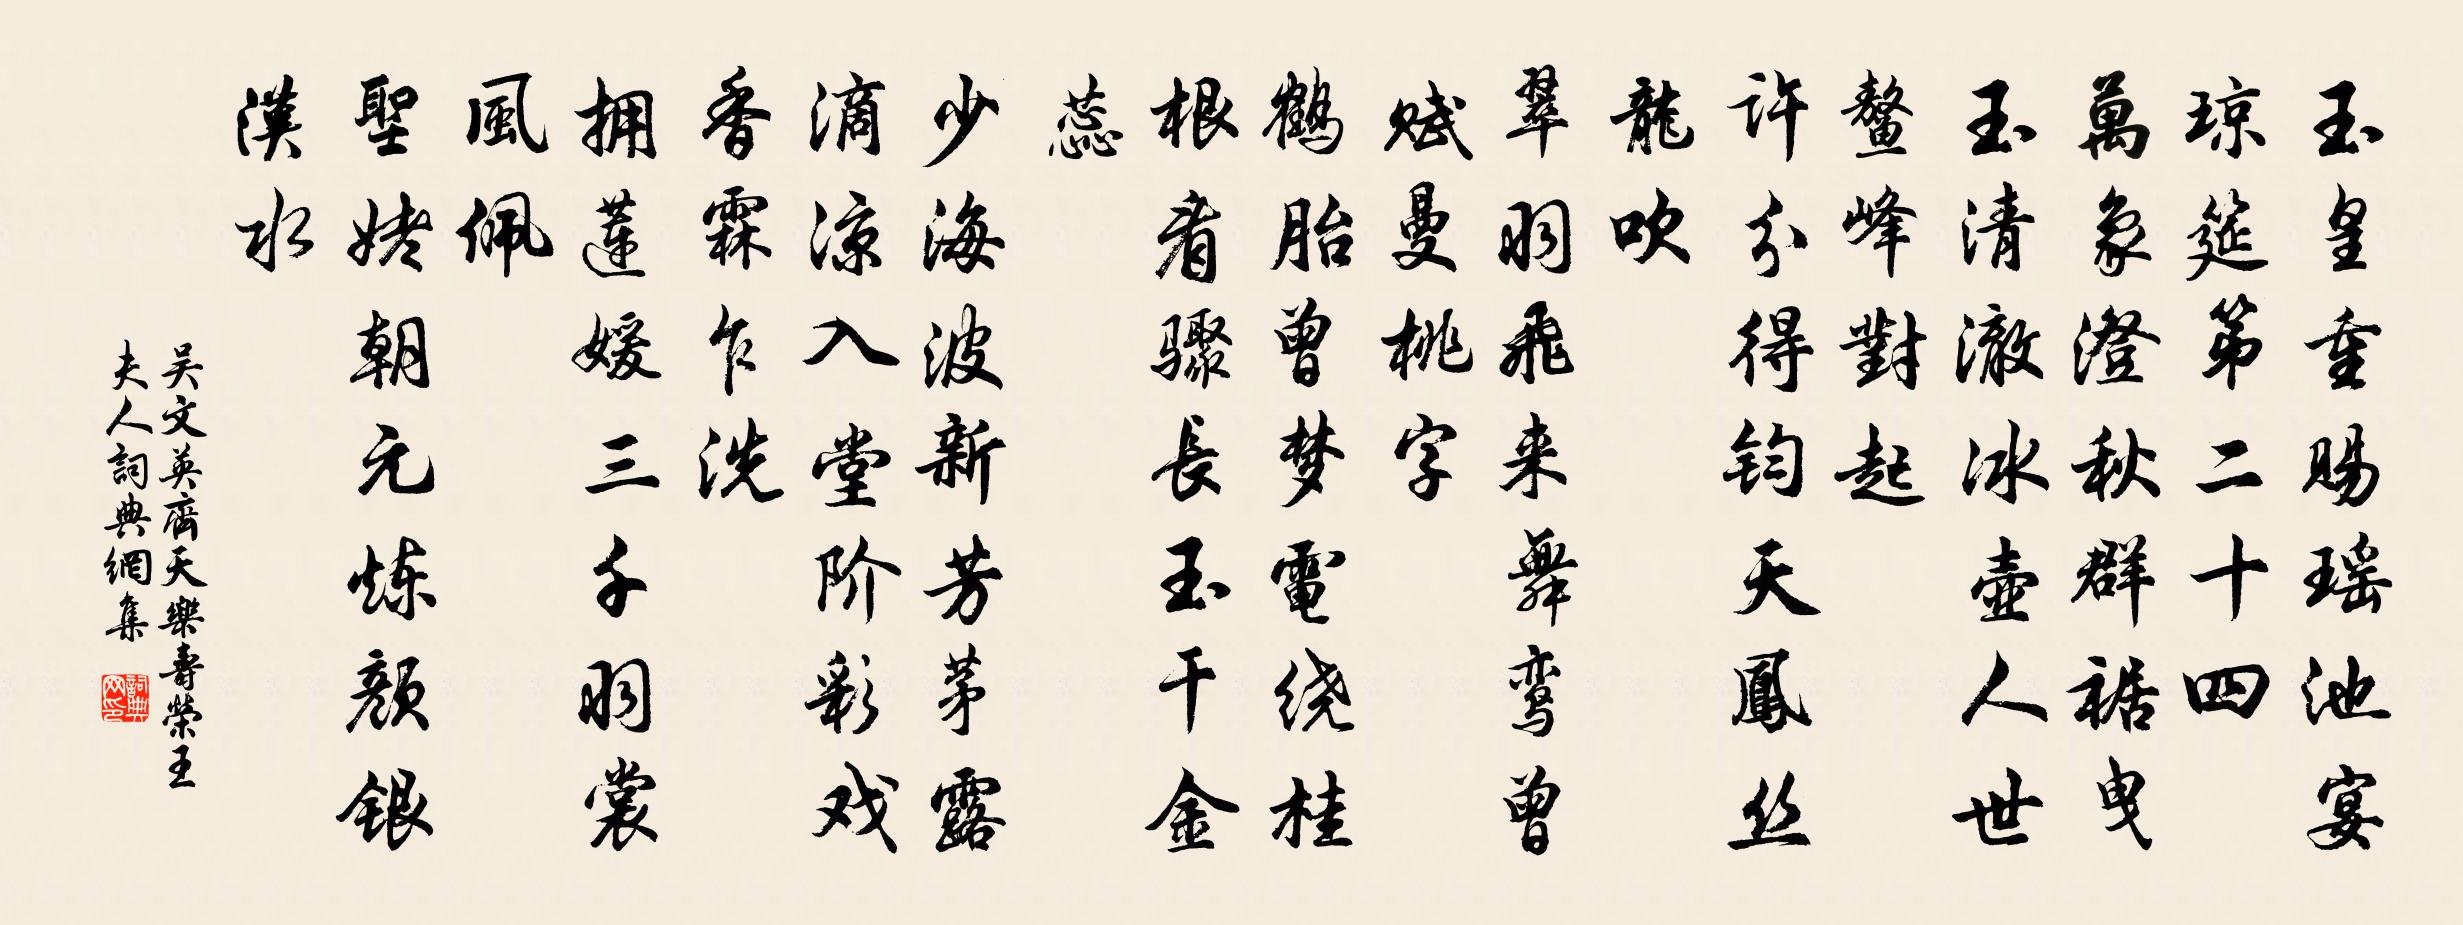 玉皇重赐瑶池宴
琼筵第二十四
萬象澄秋群裾曳
玉清澈冰壶人世
鳌峰對起
许分得钧天鳳丝
龍吹
翠羽飛来舞鸾曾
赋曼桃字
鶴胎曾梦電绕桂
根看骤長玉干金
蕊
少海波新芳茅露
滴凉入堂阶彩戏
香霖乍洗
拥蓮媛三千羽裳
風佩
聖姥朝元炼颜銀
漢水
吴文英齊天樂壽榮王
夫人詞典網集
詞典
网印